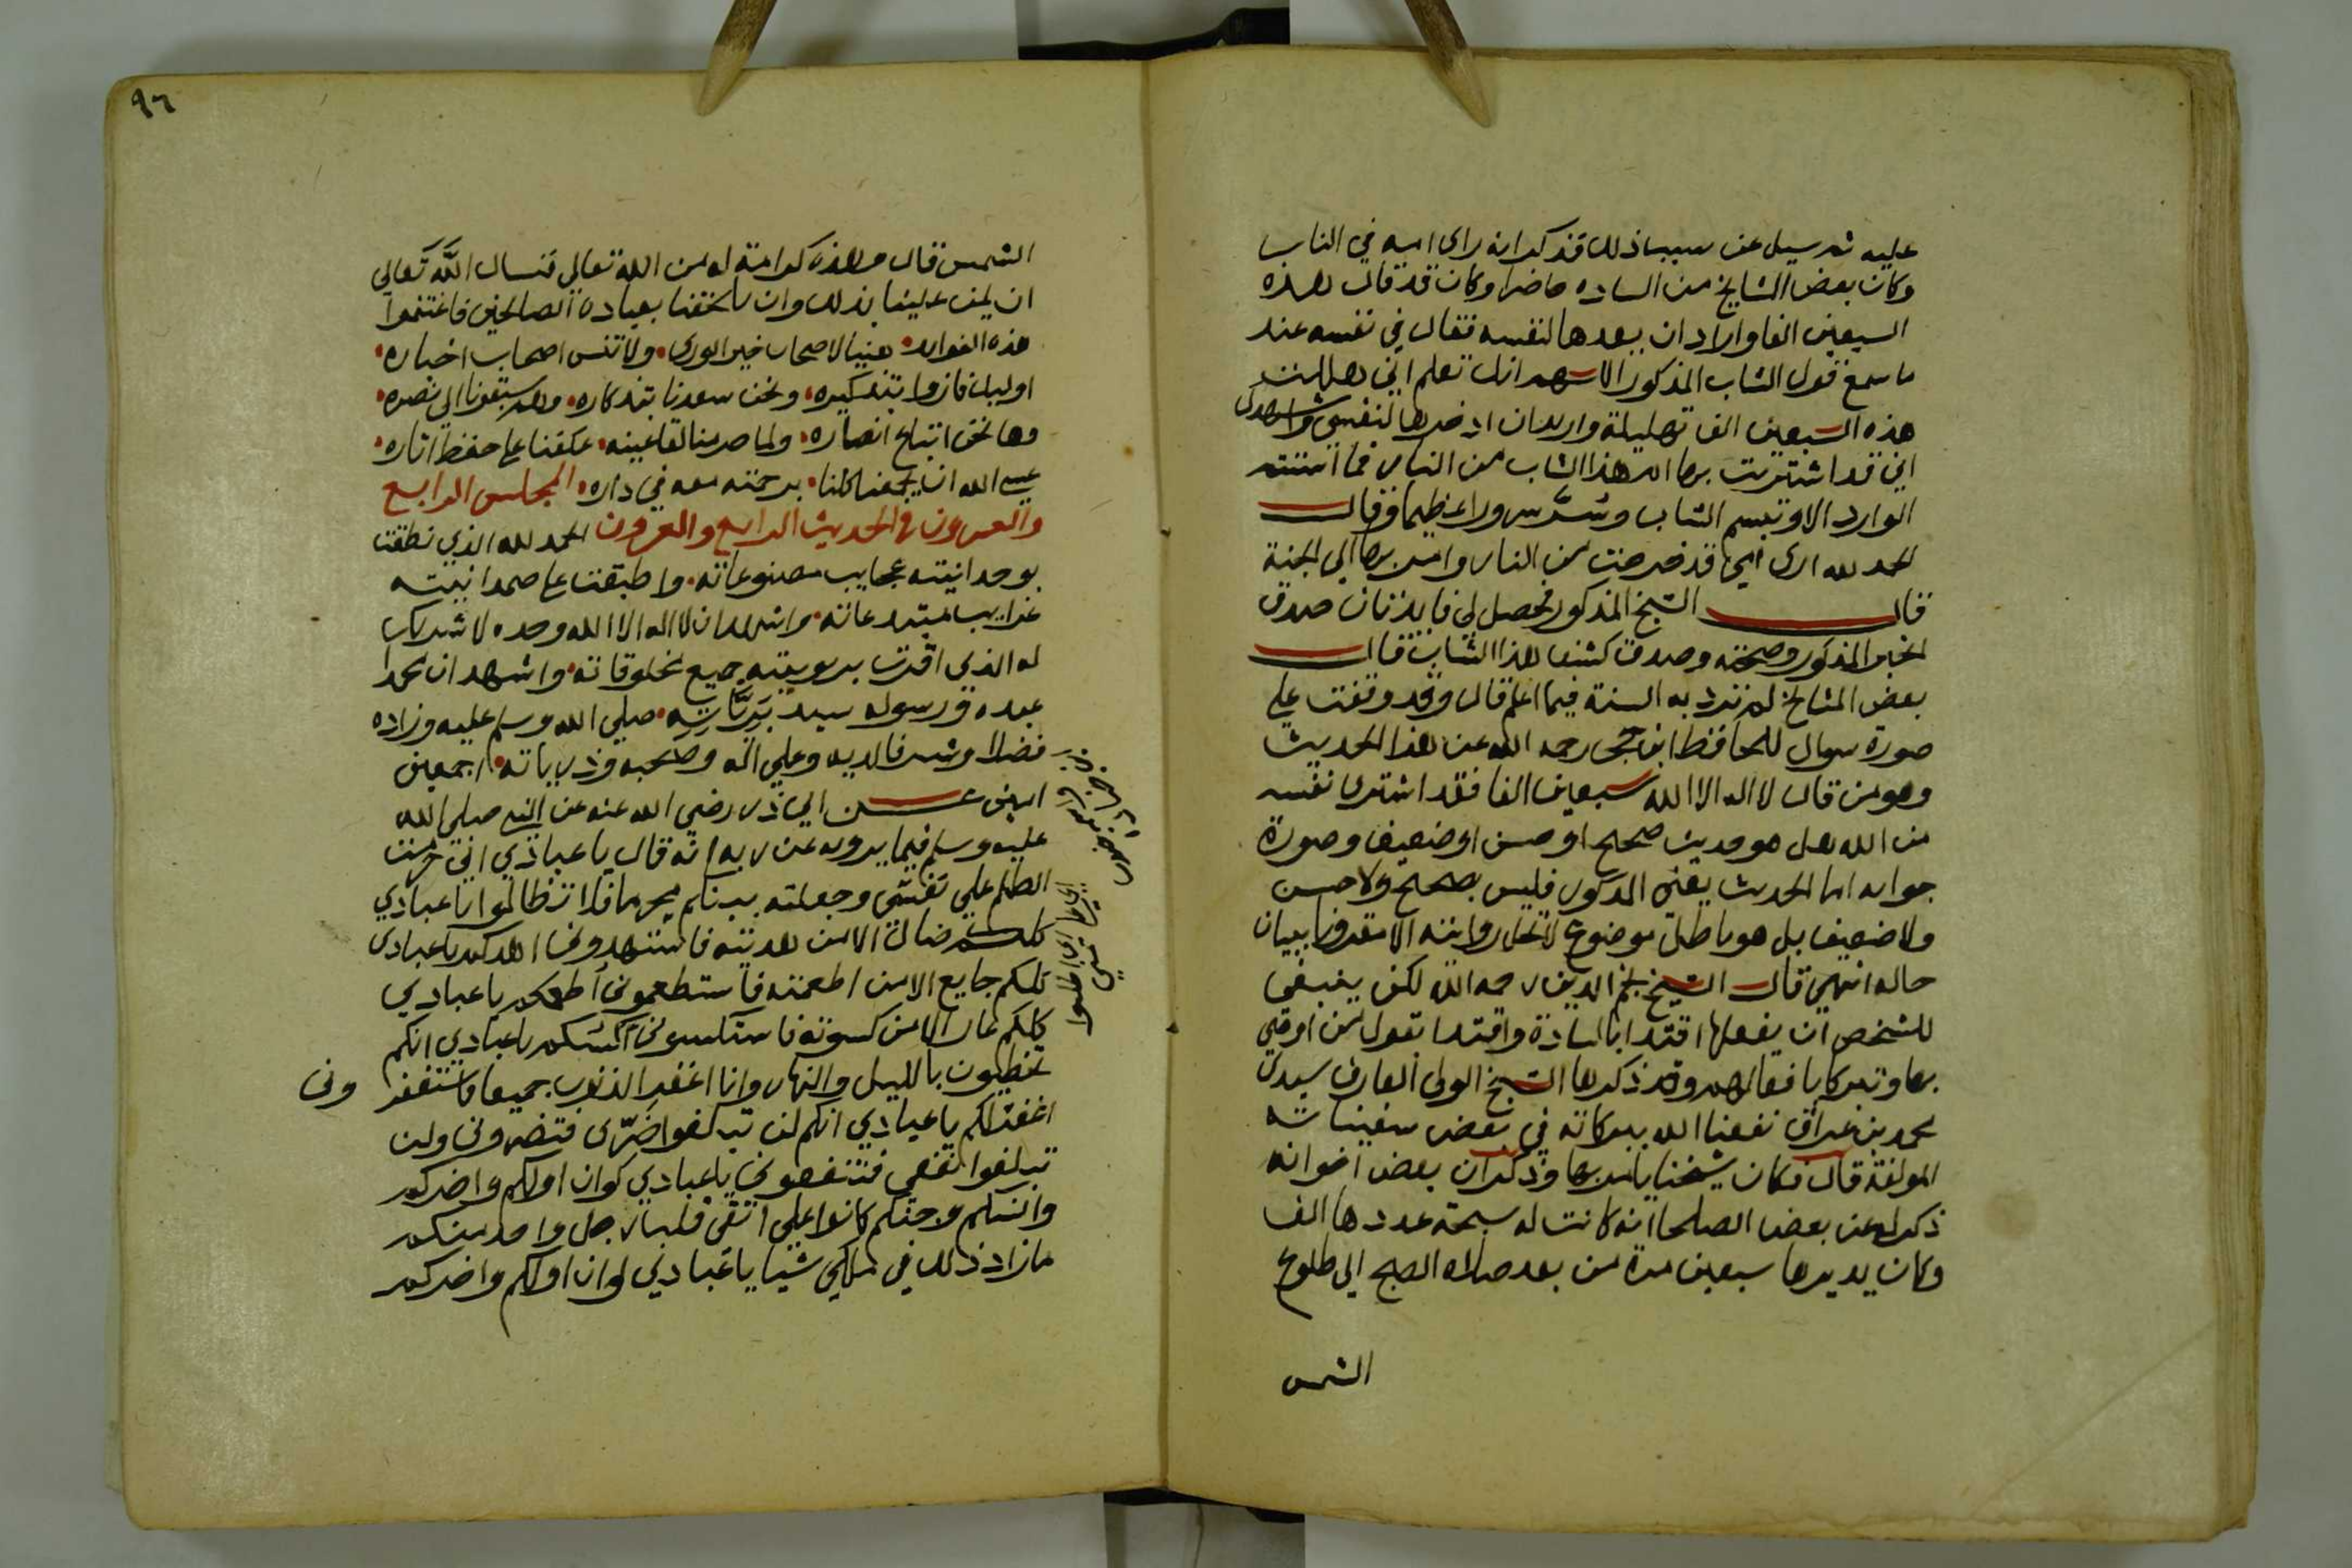 عليه ثم سيل عن سبب ذلك فذكر انه راى امه في النار
وكان بعض المشايخ من الساده حاضرا وكان قد قال هذه
السبعين الفا واراد ان يعدها لنفسه فقال في نفسه عند
ما سمع قول الشاب المذكور اللهم انك تعلم اني هللت
هذه السبعين الف تهليلة واريدان ادخرها لنفسي واشهدك
اني قد اشتريت بها ام هذا الشاب من النار فما استتم
الوارد الا وتبسم الشاب وسُرَّ سرورا عظيما وقال
الحمد لله ارى امي قد خرجت من النار وامر بها الى الجنة
قال الشيخ المذكور فحصل لي فايدتان صدق
الخبر المذكور وصحته وصدق كشف هذا الشاب قال
بعض المشايخ لم ترد به السنة فيما اعلم قال وقد وقفت على
صورة سوال للحافظ ابن حجر رحمه الله عن هذا الحديث
وهو من قال لا اله الا الله سبعين الفا فقد اشترى نفسه
من الله هل هو حديث صحيح او حسن او ضعيف وصورة
جوابه اما الحديث يعني المذكور فليس بصحيح ولا حسن
ولا ضعيف بل هو باطل موضوع لا تحل روايته الا مقرونا ببيان
حاله انتهى قال الشيخ نجم الدين رحمه الله لكن ينبغي
للشخص ان يفعلها اقتدا بالسادة واقتدا بقول من اوصى
بها وتبركا بافعالهم وقد ذكرها الشيخ الولي العارف سيدي
محمد بن عراق نفعنا الله ببركاته في بعض سفيناته
المولفة قال فكان شيخنا يامر بها وذكر ان بعض اخوانه
ذكر له عن بعض الصلحا انه كانت له سبحة عددها الف
وكان يديرها سبعين مرة من بعد صلاة الصبح الى طلوع
الشمس
٩٦
الشمس قال وهذه كرامة له من الله تعالى فنسال الله تعالى
ان يمن علينا بذلك وان يلحقنا بعباده الصالحين فاغتنموا
هذه الفوايد هنيا لاصحاب خير الورى ولا تنس اصحاب اخباره
اوليك فازوا بتذكيره ونحن سعدنا بتذكاره وهم سبقونا الى نصره
وها نحن اتباع انصاره ولما حرمنا لقا عينه عكفنا على حفظ اثاره
عسى الله ان يجمعنا كلنا برحمته معه في داره المجلس الرابع
والعشرون في الحديث الرابع والعشرون الحمد لله الذي نطقت
بوحدانيته عجايب مصنوعاته واطبقت على صمدانيته
غرايب مبتدعاته واشهد ان لا اله الا الله وحده لا شريك
له الذي اقرت بربوبيته جميع مخلوقاته واشهد ان محمدا
عبده ورسوله سيد برياته صلى الله وسلم عليه وزاده
فضلا وشرفا لديه وعلى اله وصحبه وذرياته اجمعين
امين عن ابي ذر رضي الله عنه عن النبي صلى الله
عليه وسلم فيما يرويه عن ربه انه قال يا عبادي اني حرمت
الظلم على نفسي وجعلته بينكم محرما فلا تظالموا يا عبادي
كلكم ضال الا من هديته فاستهدوني اهدكم يا عبادي
كلكم جايع الا من اطعمته فاستطعموني اطعمكم يا عبادي
كلكم عار الا من كسوته فاستكسوني اكسكم يا عبادي انكم
تخطيون بالليل والنهار وانا اغفر الذنوب جميعا فاستغفر وني
اغفر لكم يا عبادي انكم لن تبلغوا ضرّى فتضروني ولن
تبلغوا نفعي فتنفعوني يا عبادي لو ان اولكم واخركم
وانسكم وجنكم كانوا على اتقى قلب رجل واحد منكم
ما زاد ذلك في ملكي شيا يا عبادي لو ان اولكم واخركم